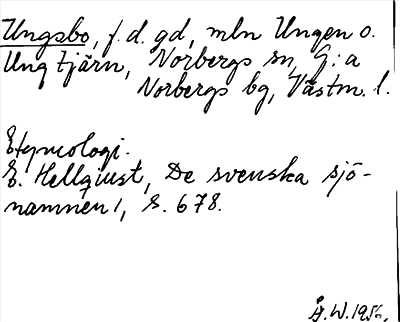 Ungsbo, f.d. gd, mln Ungen o.
Ungtjärn, Norbergs sn, G:a
Norbergs bg, Västm. l.
Etymologi.
E. Hellquist, De svenska sjö-
namnen 1, s. 678.
Å.W. 1956.